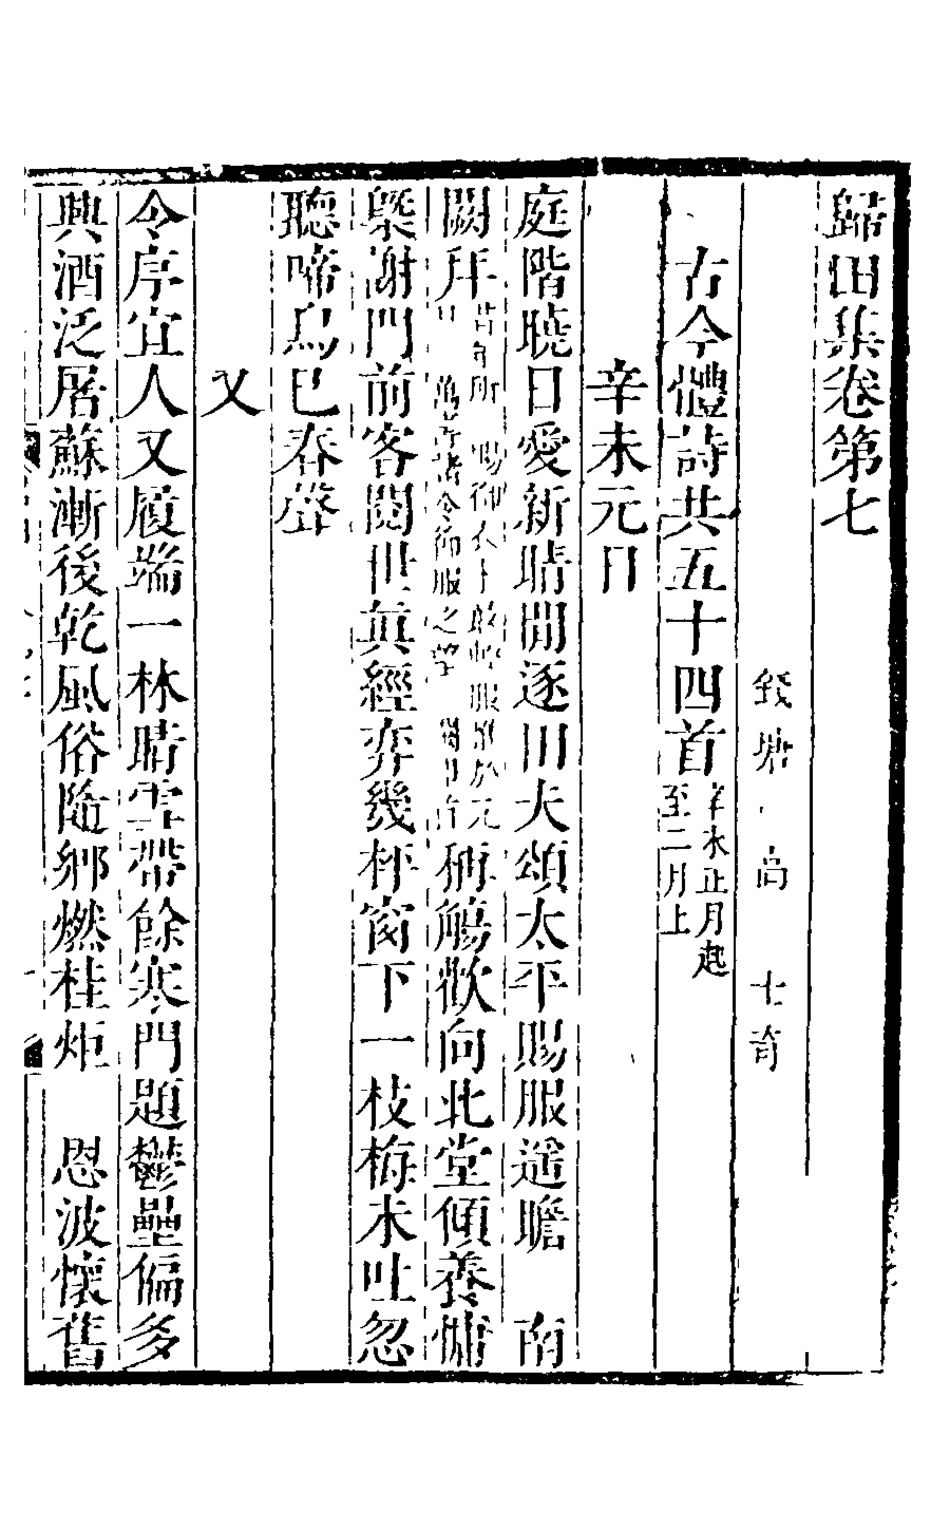 歸田集卷第七
錢塘 高 士奇
古今體詩共五十四首辛未正月起
至二月上
辛未元日
庭階曉日愛新晴閒逐田夫頌太平賜服遥瞻 南
闕拜昔年所 賜御衣不敢輕服 於元
稱觴歡向北堂傾養慵
槩謝門前客閱世眞經弈幾枰窗下一枝梅未吐忽
聽啼鳥已春聲
又
令序宜人又履端一林晴雪帶餘寒門題鬱壘偏多
興酒泛屠蘇漸後乾風俗隨鄉燃桂炬 恩波懷舊